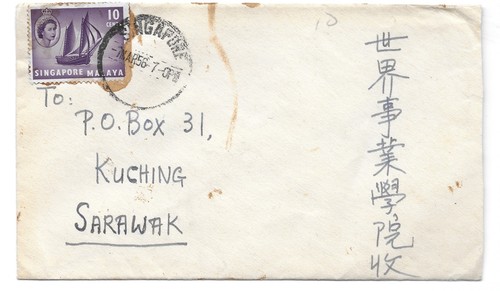 10
CENTS
SINGAPORE MALAYA
SINGAPORE
-7MAR56-7-0PM
To:
P.O. Box 31,
KUCHING
SARAWAK
世界事業學院收